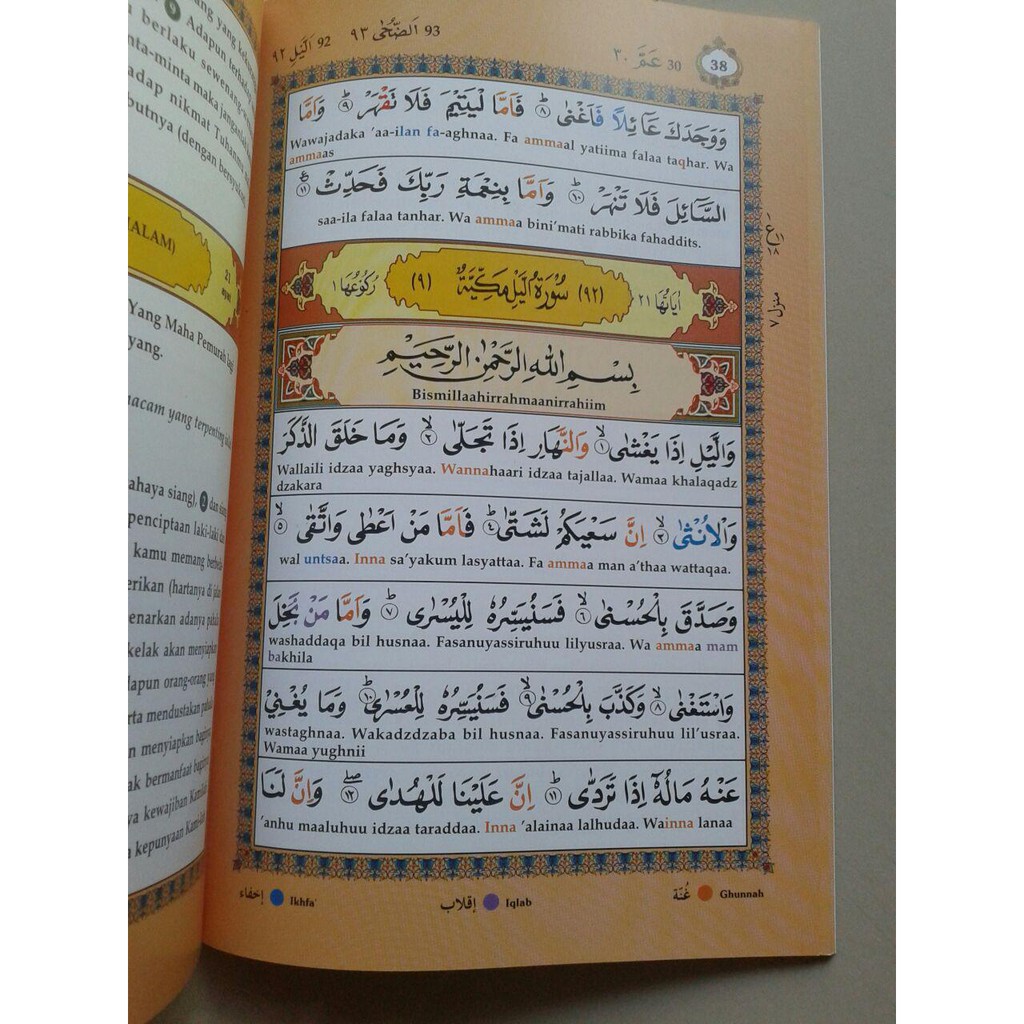 93 اَلضُّحٰى ٩٣
92 اَلَّيْلِ ٩٢
30 عَمَّ ٣٠
38
وَوَجَدَكَ عَآئِلًا فَاَغْنٰىۗ ٨ فَاَمَّا الْيَتِيْمَ فَلَا تَقْهَرْۗ ٩ وَاَمَّا
Wawajadaka 'aa-ilan fa-aghnaa. Fa ammaal yatiima falaa taqhar. Wa
ammaas
السَّآئِلَ فَلَا تَنْهَرْۗ ١٠ وَاَمَّا بِنِعْمَةِ رَبِّكَ فَحَدِّثْ ١١
saa-ila falaa tanhar. Wa ammaa bini'mati rabbika fahaddits.
اٰيَاتُهَا ٢١ (٩٢) سُوْرَةُ الَّيْلِ مَكِّيَّةٌ (٩) رُكُوْعُهَا ١
منزل ٧
بِسْمِ اللّٰهِ الرَّحْمٰنِ الرَّحِيْمِ
Bismillaahirrahmaanirrahiim
وَالَّيْلِ اِذَا يَغْشٰىۙ ١ وَالنَّهَارِ اِذَا تَجَلّٰىۙ ٢ وَمَا خَلَقَ الذَّكَرَ
Wallaili idzaa yaghsyaa. Wannahaari idzaa tajallaa. Wamaa khalaqadz
dzakara
وَالْاُنْثٰىۙ ٣ اِنَّ سَعْيَكُمْ لَشَتّٰىۗ ٤ فَاَمَّا مَنْ اَعْطٰى وَاتَّقٰىۙ ٥
wal untsaa. Inna sa'yakum lasyattaa. Fa ammaa man a'thaa wattaqaa.
وَصَدَّقَ بِالْحُسْنٰىۙ ٦ فَسَنُيَسِّرُهٗ لِلْيُسْرٰىۗ ٧ وَاَمَّا مَنْۢ بَخِلَ
washaddaqa bil husnaa. Fasanuyassiruhuu lilyusraa. Wa ammaa mam
bakhila
وَاسْتَغْنٰىۙ ٨ وَكَذَّبَ بِالْحُسْنٰىۙ ٩ فَسَنُيَسِّرُهٗ لِلْعُسْرٰىۗ ١٠ وَمَا يُغْنِيْ
wastaghnaa. Wakadzdzaba bil husnaa. Fasanuyassiruhuu lil'usraa.
Wamaa yughnii
عَنْهُ مَالُهٗٓ اِذَا تَرَدّٰىۗ ١١ اِنَّ عَلَيْنَا لَلْهُدٰىۖ ١٢ وَاِنَّ لَنَا
'anhu maaluhuu idzaa taraddaa. Inna 'alainaa lalhudaa. Wainna lanaa
إخفاء Ikhfa'
إقلاب Iqlab
غُنَّة Ghunnah
yang
Adapun terhadap
berlaku sewenang-
minta maka
nikmat Tuhanmu
(dengan
ALAM)
21
ayat
Yang Maha Pemurah lagi
yang.
macam yang terpenting
siang), 2 dan
penciptaan laki-laki dan
kamu memang
(hartanya di jalan
adanya
kelak akan menyiapkan
orang-orang yang
mendustakan
menyiapkan
bermanfaat
kewajiban
kepunyaan